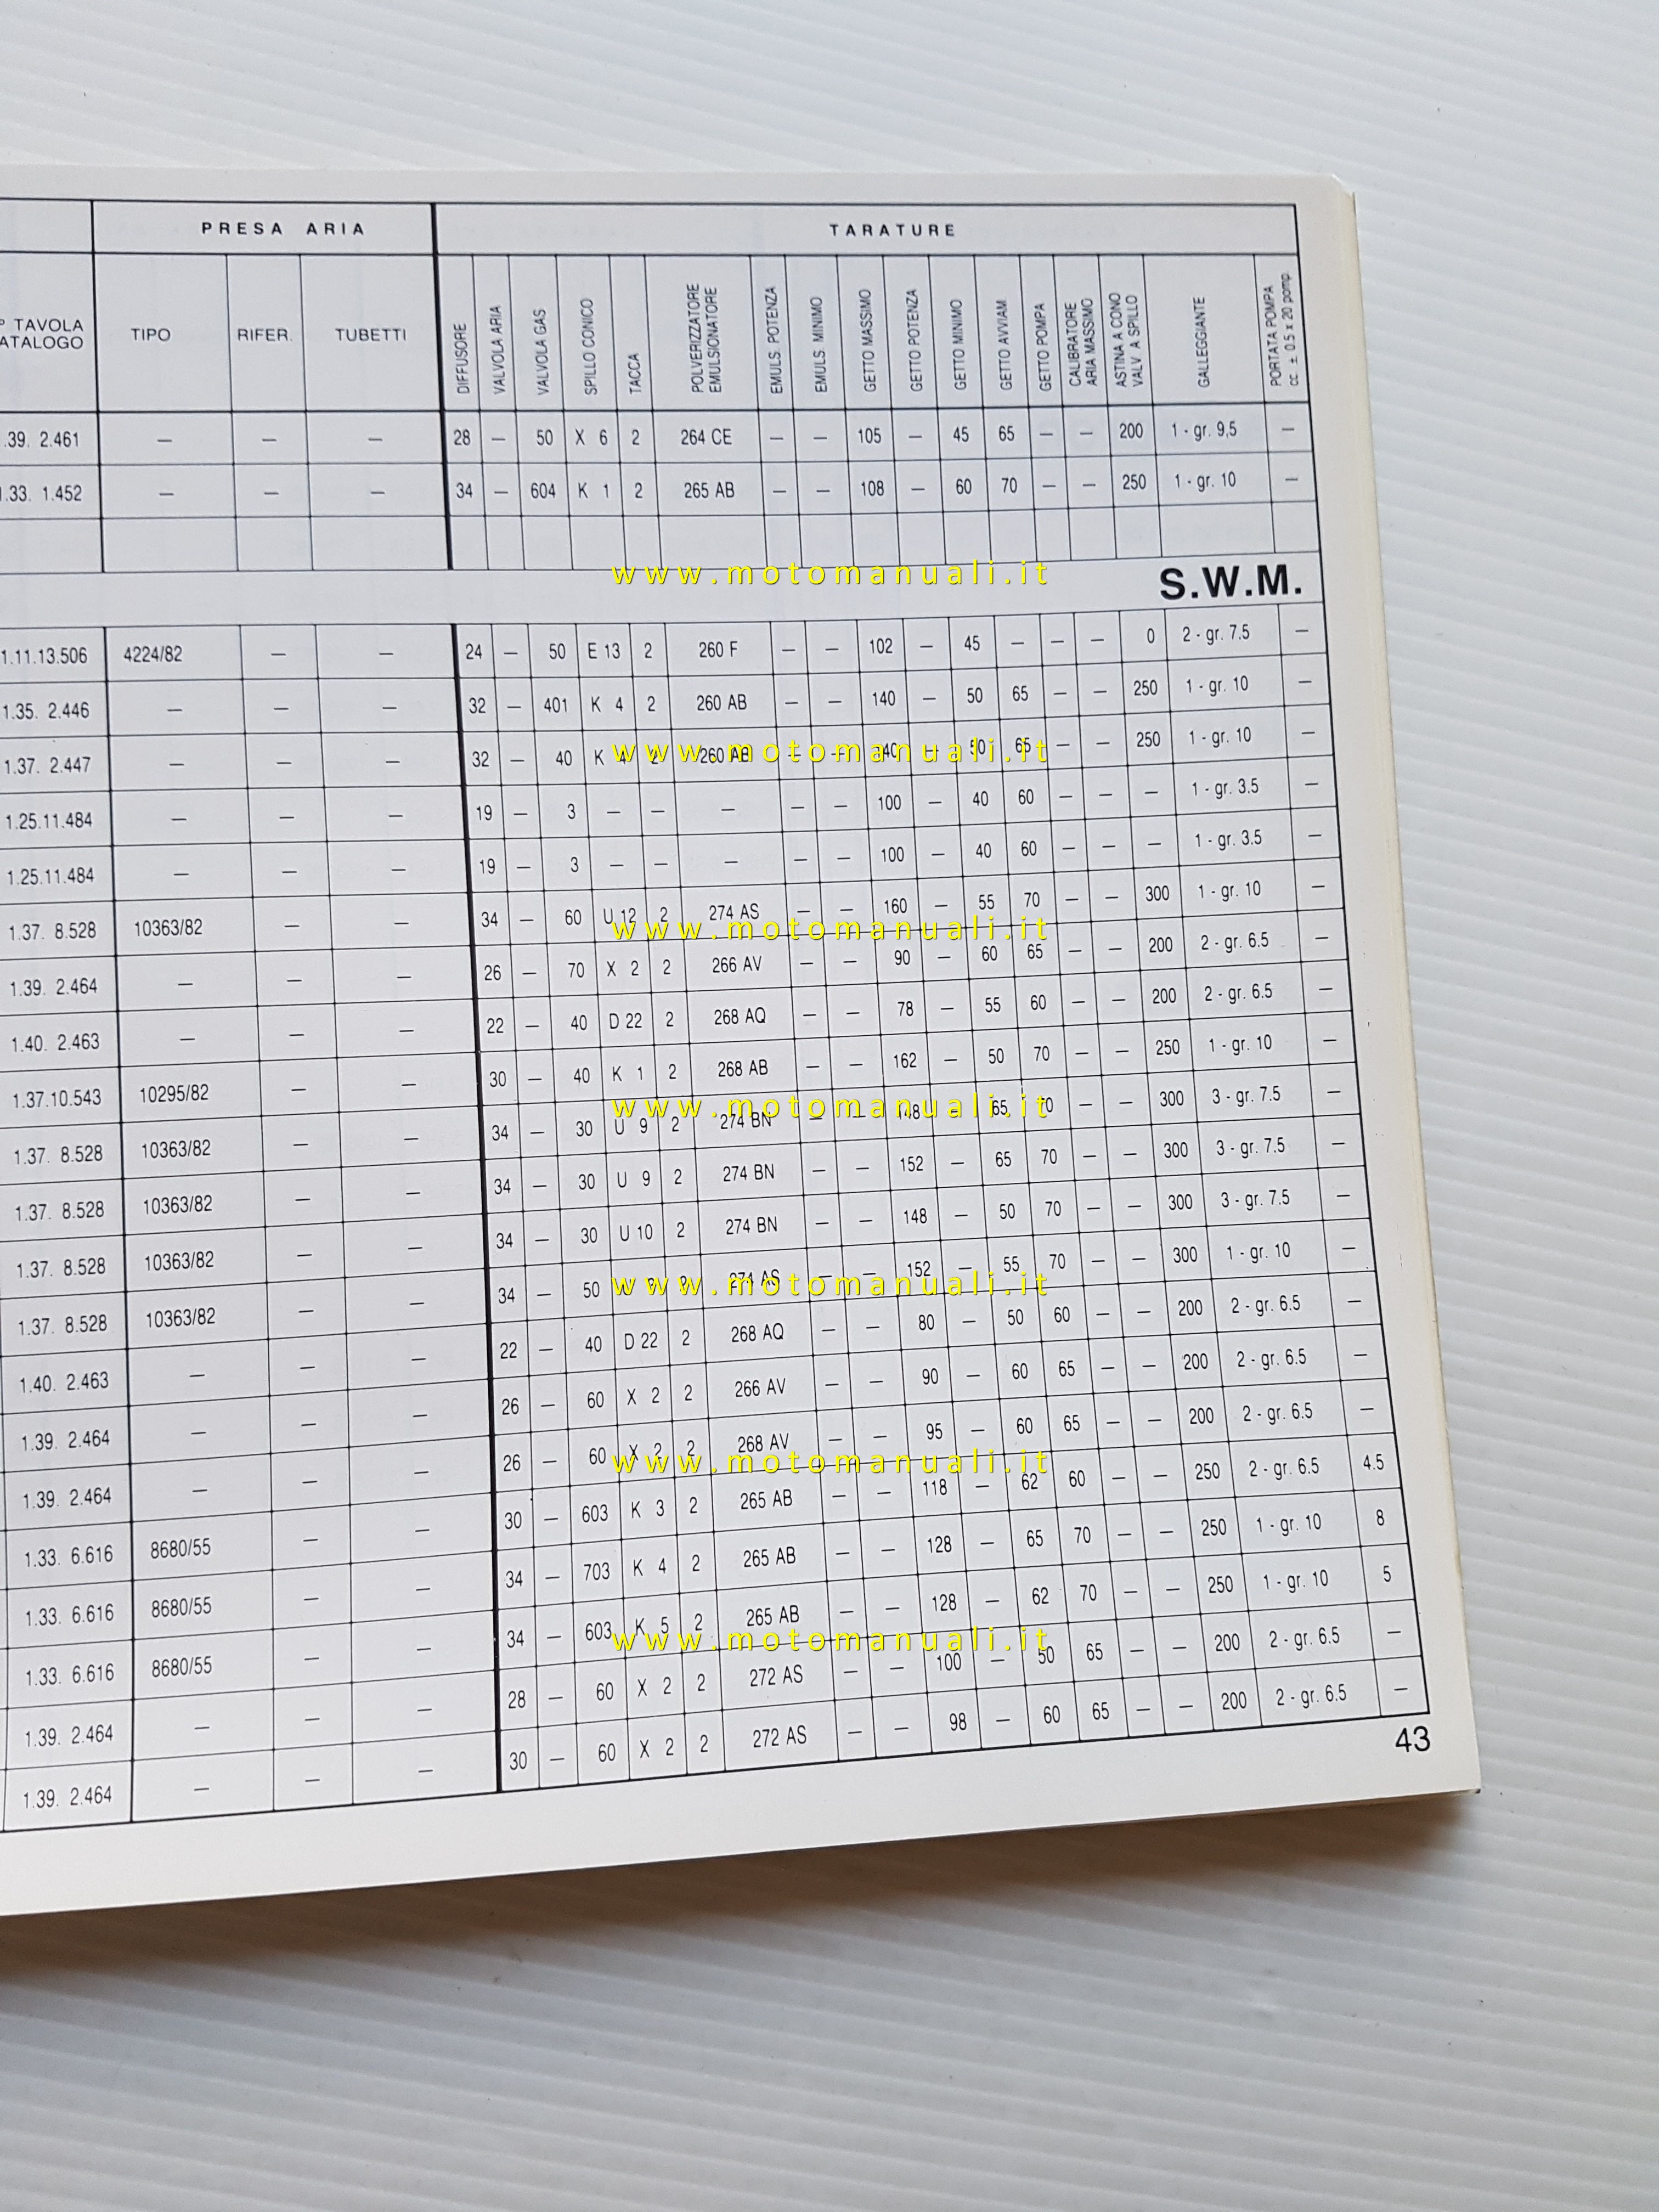 PRESA ARIA TARATURE
° TAVOLA
ATALOGO
TIPO RIFER. TUBETTI
DIFFUSORE
VALVOLA ARIA
VALVOLA GAS
SPILLO CONICO
TACCA
POLVERIZZATORE
EMULSIONATORE
EMULS. POTENZA
EMULS. MINIMO
GETTO MASSIMO
GETTO POTENZA
GETTO MINIMO
GETTO AVVIAM.
GETTO POMPA
CALIBRATORE
ARIA MASSIMO
ASTINA A CONO
VALV. A SPILLO
GALLEGGIANTE
PORTATA POMPA
cc. ± 0.5 x 20 pomp.
.39. 2.461 — — — 28 — 50 X 6 2 264 CE — — 105 — 45 65 — — 200 1 - gr. 9,5 —
.33. 1.452 — — — 34 — 604 K 1 2 265 AB — — 108 — 60 70 — — 250 1 - gr. 10 —
www.motomanuali.it
S.W.M.
1.11.13.506 4224/82 — — 24 — 50 E 13 2 260 F — — 102 — 45 — — — 0 2 - gr. 7.5 —
1.35. 2.446 — — — 32 — 401 K 4 2 260 AB — — 140 — 50 65 — — 250 1 - gr. 10 —
1.37. 2.447 — — — 32 — 40 K 4 2 260 AB — — 40 — 50 65 — — 250 1 - gr. 10 —
www.motomanuali.it
1.25.11.484 — — — 19 — 3 — — — — — 100 — 40 60 — — — 1 - gr. 3.5 —
1.25.11.484 — — — 19 — 3 — — — — — 100 — 40 60 — — — 1 - gr. 3.5 —
1.37. 8.528 10363/82 — — 34 — 60 U 12 2 274 AS — — 160 — 55 70 — — 300 1 - gr. 10 —
www.motomanuali.it
1.39. 2.464 — — — 26 — 70 X 2 2 266 AV — — 90 — 60 65 — — 200 2 - gr. 6.5 —
1.40. 2.463 — — — 22 — 40 D 22 2 268 AQ — — 78 — 55 60 — — 200 2 - gr. 6.5 —
1.37.10.543 10295/82 — — 30 — 40 K 1 2 268 AB — — 162 — 50 70 — — 250 1 - gr. 10 —
1.37. 8.528 10363/82 — — 34 — 30 U 9 2 274 BN — — 148 — 65 70 — — 300 3 - gr. 7.5 —
www.motomanuali.it
1.37. 8.528 10363/82 — — 34 — 30 U 9 2 274 BN — — 152 — 65 70 — — 300 3 - gr. 7.5 —
1.37. 8.528 10363/82 — — 34 — 30 U 10 2 274 BN — — 148 — 50 70 — — 300 3 - gr. 7.5 —
1.37. 8.528 10363/82 — — 34 — 50 274 AS — — 152 — 55 70 — — 300 1 - gr. 10 —
www.motomanuali.it
1.40. 2.463 — — — 22 — 40 D 22 2 268 AQ — — 80 — 50 60 — — 200 2 - gr. 6.5 —
1.39. 2.464 — — — 26 — 60 X 2 2 266 AV — — 90 — 60 65 — — 200 2 - gr. 6.5 —
1.39. 2.464 — — — 26 — 60 X 2 2 268 AV — — 95 — 60 65 — — 200 2 - gr. 6.5 —
www.motomanuali.it
1.33. 6.616 8680/55 — — 30 — 603 K 3 2 265 AB — — 118 — 62 60 — — 250 2 - gr. 6.5 4.5
1.33. 6.616 8680/55 — — 34 — 703 K 4 2 265 AB — — 128 — 65 70 — — 250 1 - gr. 10 8
1.33. 6.616 8680/55 — — 34 — 603 K 5 2 265 AB — — 128 — 62 70 — — 250 1 - gr. 10 5
www.motomanuali.it
1.39. 2.464 — — — 28 — 60 X 2 2 272 AS — — 100 — 50 65 — — 200 2 - gr. 6.5 —
1.39. 2.464 — — — 30 — 60 X 2 2 272 AS — — 98 — 60 65 — — 200 2 - gr. 6.5 —
43